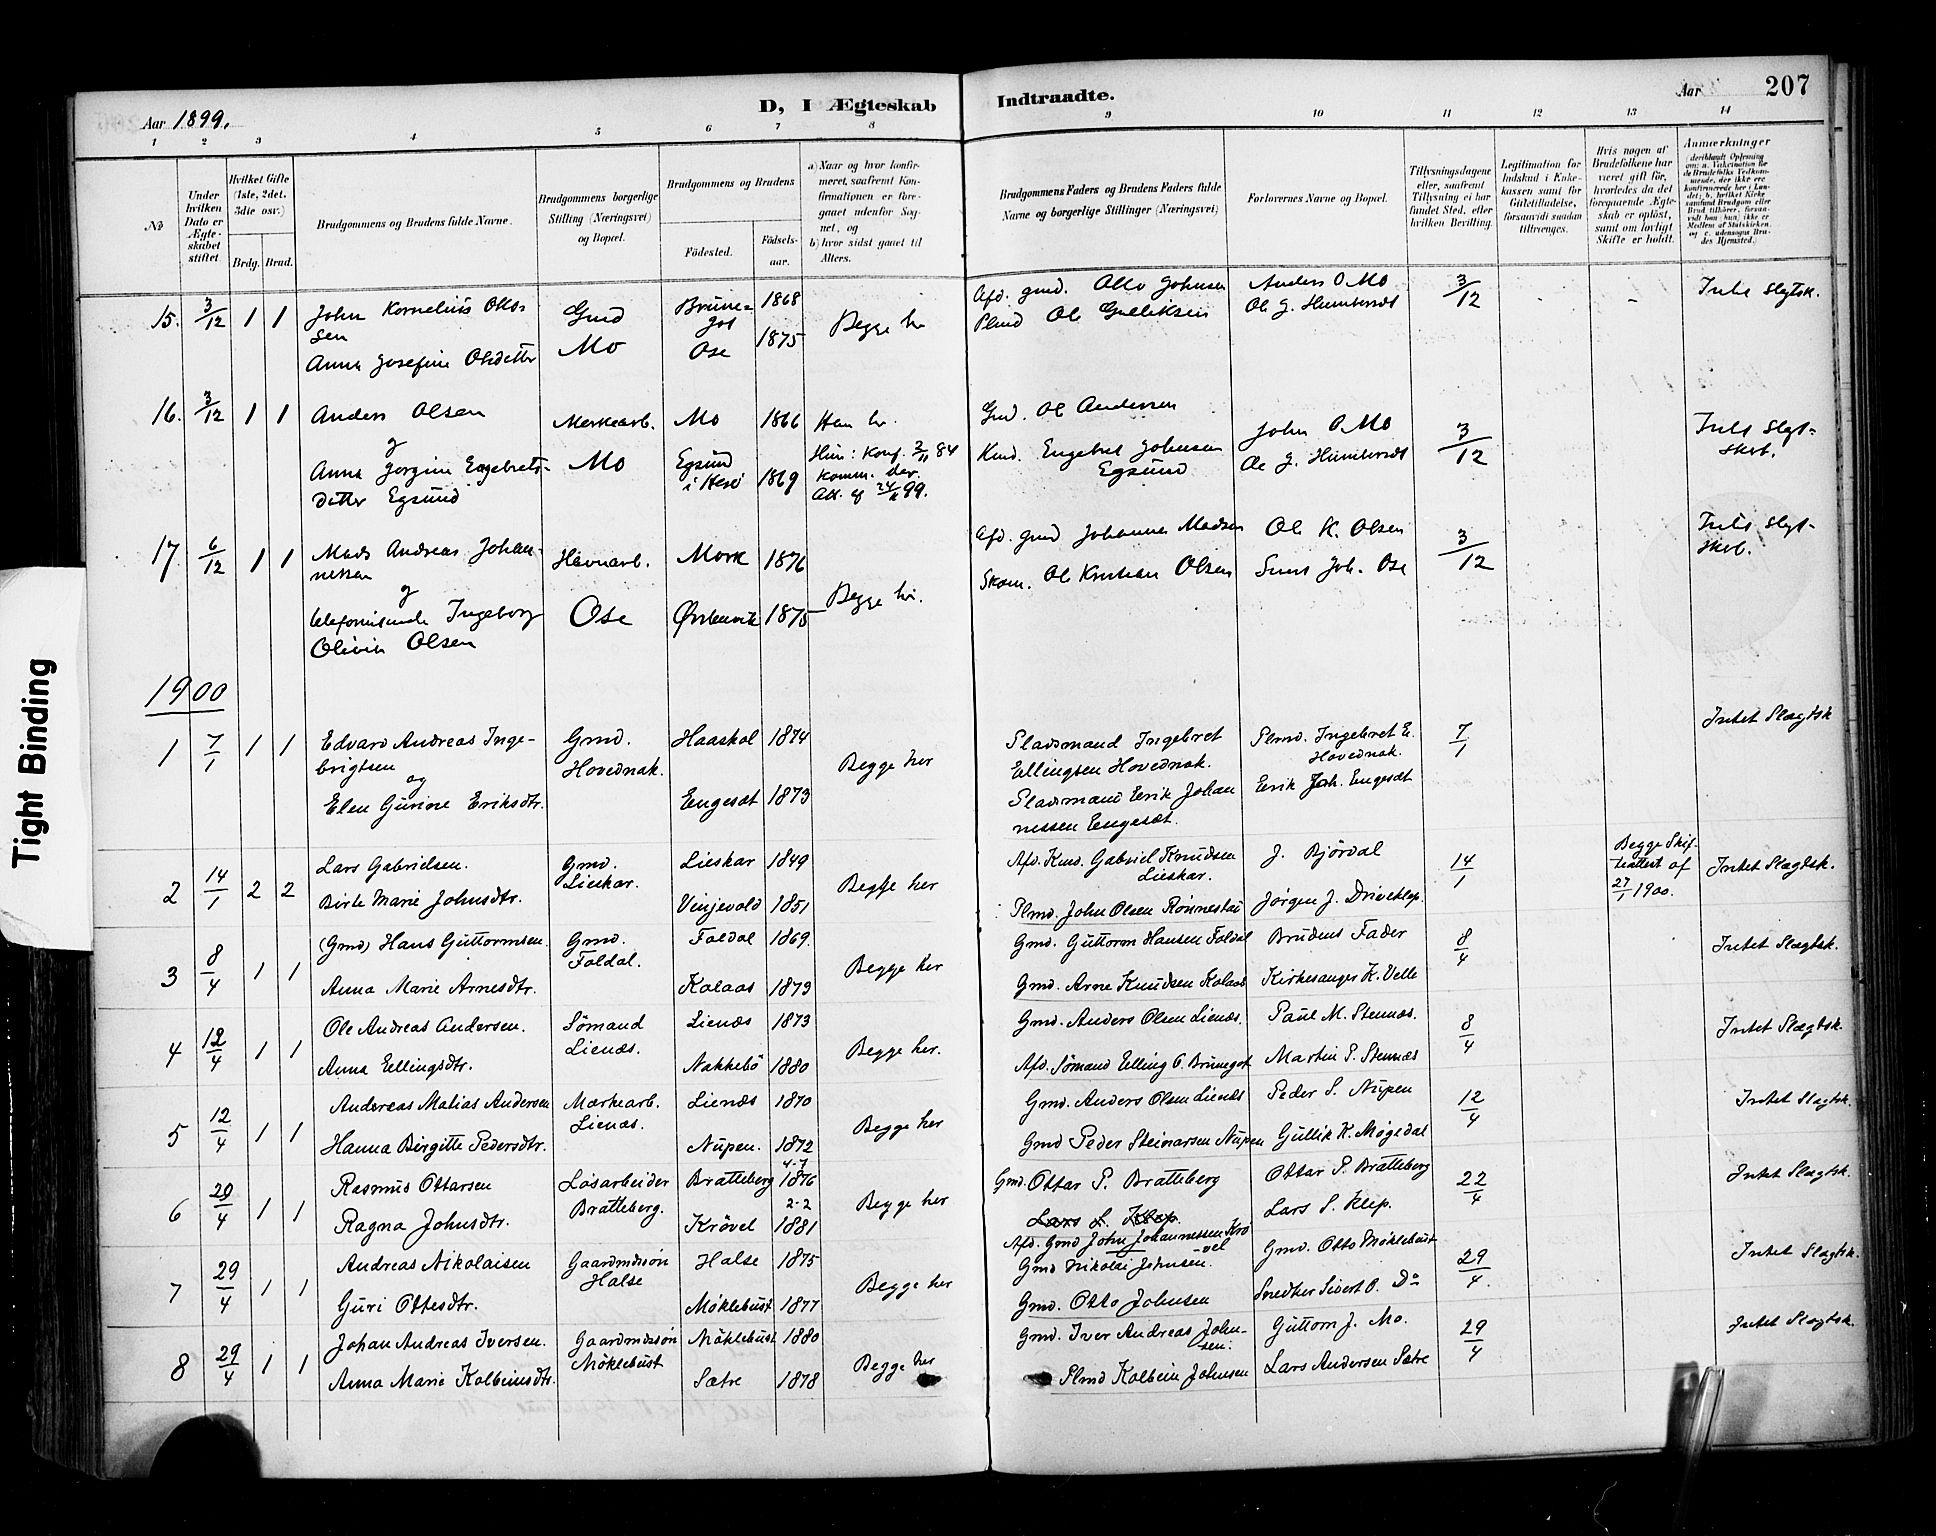 Tight Binding
Aar 1899. D, I Ægteskab Indtraadte. Aar 207
1 2 3 4 5 6 7 8 9 10 11 12 13 14
No
Under hvilken Dato er Ægteskabet stiftet.
Hvilket Gifte (1ste, 2det, 3die osv.)
Brdg. Brud.
Brudgommens og Brudens fulde Navne.
Brudgommens borgerlige Stilling (Næringsvei) og Bopæl.
Brudgommens og Brudens
Fødested.
Födsels-aar.
a) Naar og hvor konfirmeret, saafremt Konfirmationen er foregaaet udenfor Sognet, og
b) hvor sidst gaaet til Alters.
Brudgommens Faders og Brudens Faders fulde Navne og borgerlige Stillinger (Næringsvei)
Forlovernes Navne og Bopæl.
Tillysningsdagene eller, saafremt Tillysning ei har fundet Sted, efter hvilken Bevilling.
Legitimation for Indskud i Enkekassen samt for Giftetilladelse, forsaavidt saadan tiltrænges.
Hvis nogen af Brudefolkene har været gift før, hvorledes da det foregaaende Ægteskab er opløst, samt om lovligt Skifte er holdt.
Anmærkninger
15. 3/12 1 1 John Kornelius Ottosen Gmd Brunegot 1868 Begge her Afd. gmd. Otto Johnsen Anders O Mo 3/12 Intet Slegtsk.
Anna Josefine Olsdatter Mo Ose 1875 Plmd Ole Gulliksen Ole J. Humberset
16. 3/12 1 1 Anders Olsen Merkearb. Mo 1866 Han her. Gmd. Ole Andersen John O Mo 3/12 Intet Slegtskab.
og
Anna Jorgine Engebretsdatter Egsund Mo Egsund i Herö 1869 Hun: Konf. 2/11 84 Komm. der. Att. af 24/11 99. Kmd. Engebret Johnsen Egsund Ole J. Humberset
17. 6/12 1 1 Mads Andreas Johannessen Havnearb. Mork 1876 Begge her. Afd. gmd Johannes Madsen Ole K. Olsen 3/12 Intet Slegtskab.
og
telefonistinde Ingeborg Olivia Olsen Ose Ørstenvik 1875 Skom. Ole Kristian Olsen Sivert Joh. Ose
1900
1 7/1 1 1 Edvard Andreas Ingebrigtsen Gmd. Hovednak. Haaskol 1874 Begge her Pladsmand Ingebret Ellingsen Hovednak. Plmd. Ingebret E. Hovednak. 7/1 Intet Slægtsk
og
Elen Gurine Eriksdtr. Engeset 1873 Pladsmand Erik Johannessen Engeset. Erik Joh. Engesæt
2 14/1 2 2 Lars Gabrielsen. Gmd. Lieskar. Lieskar 1849 Begge her Afd. Kmd. Gabriel Knudsen Lieskar. J. Bjørdal 14/1 Begge Skifteattest af 27/1 1900. Intet Slægtsk.
Birte Marie Johnsdtr. Vinjevold 1851 Plmd. John Olsen Rønnestad Jørgen J. Driveklep.
3 8/4 1 1 (Gmd) Hans Guttormsen. Gmd. Foldal. Foldal 1869. Begge her Gmd. Guttorm Hansen Foldal Brudens Fader 8/4 Intet Slægtsk.
Anna Marie Arnesdtr. Kolaas 1879 Gmd. Arne Knudsen Kolaas Kirkesanger K. Velle
4 12/4 1 1 Ole Andreas Andersen. Sömand Lienæs. Lienæs 1873 Begge her. Gmd. Anders Olsen Lienæs. Paul M. Stennæs. 8/4 Intet Slægtsk.
Anna Ellingsdtr. Nakkebö 1880 Afd. Sømand Elling O. Brunegot Martin P. Stennæs
5 12/4 1 1 Andreas Matias Andersen Merkearb. Lienæs. Lienæs 1870 Begge her Gmd. Anders Olsen Lienæs Peder S. Nupen 12/4 Intet Slægtsk.
Hanna Birgitte Pedersdtr. Nupen. 1872 Gmd Peder Steinarsen Nupen Gullik K. Møgedal
6 29/4 1 1 Rasmus Ottarsen Løsarbeider Bratteberg. Bratteberg 4-7 1876 Begge her Gmd. Ottar P. Bratteberg Ottar P. Bratteberg 22/4 Intet Slægtsk.
Ragna Johnsdtr. Krövel 2-2 1881 Lars L. Klep. Afd. Gmd John Johannessen Krövel Lars S. Klep.
7 29/4 1 1 Andreas Nikolaisen Gaardmdssøn Halse Halse 1875 Begge her Gmd Nikolai Johnsen. Gmd. Otto Møklebust 29/4. Intet Slægtsk.
Guri Ottesdtr. Møklebust 1877 Gmd. Otto Johnsen Snedker Sivert O. Do
8 29/4 1 1 Johan Andreas Iversen. Gaardmdssøn Møklebust Møklebust 1880 Begge her Gmd. Iver Andreas Johnsen. Guttorm J. Mo. 29/4 Intet Slægtsk.
Anna Marie Kolbeinsdtr. Sætre 1878 Plmd Kolbein Johnsen Lars Andersen Sætre